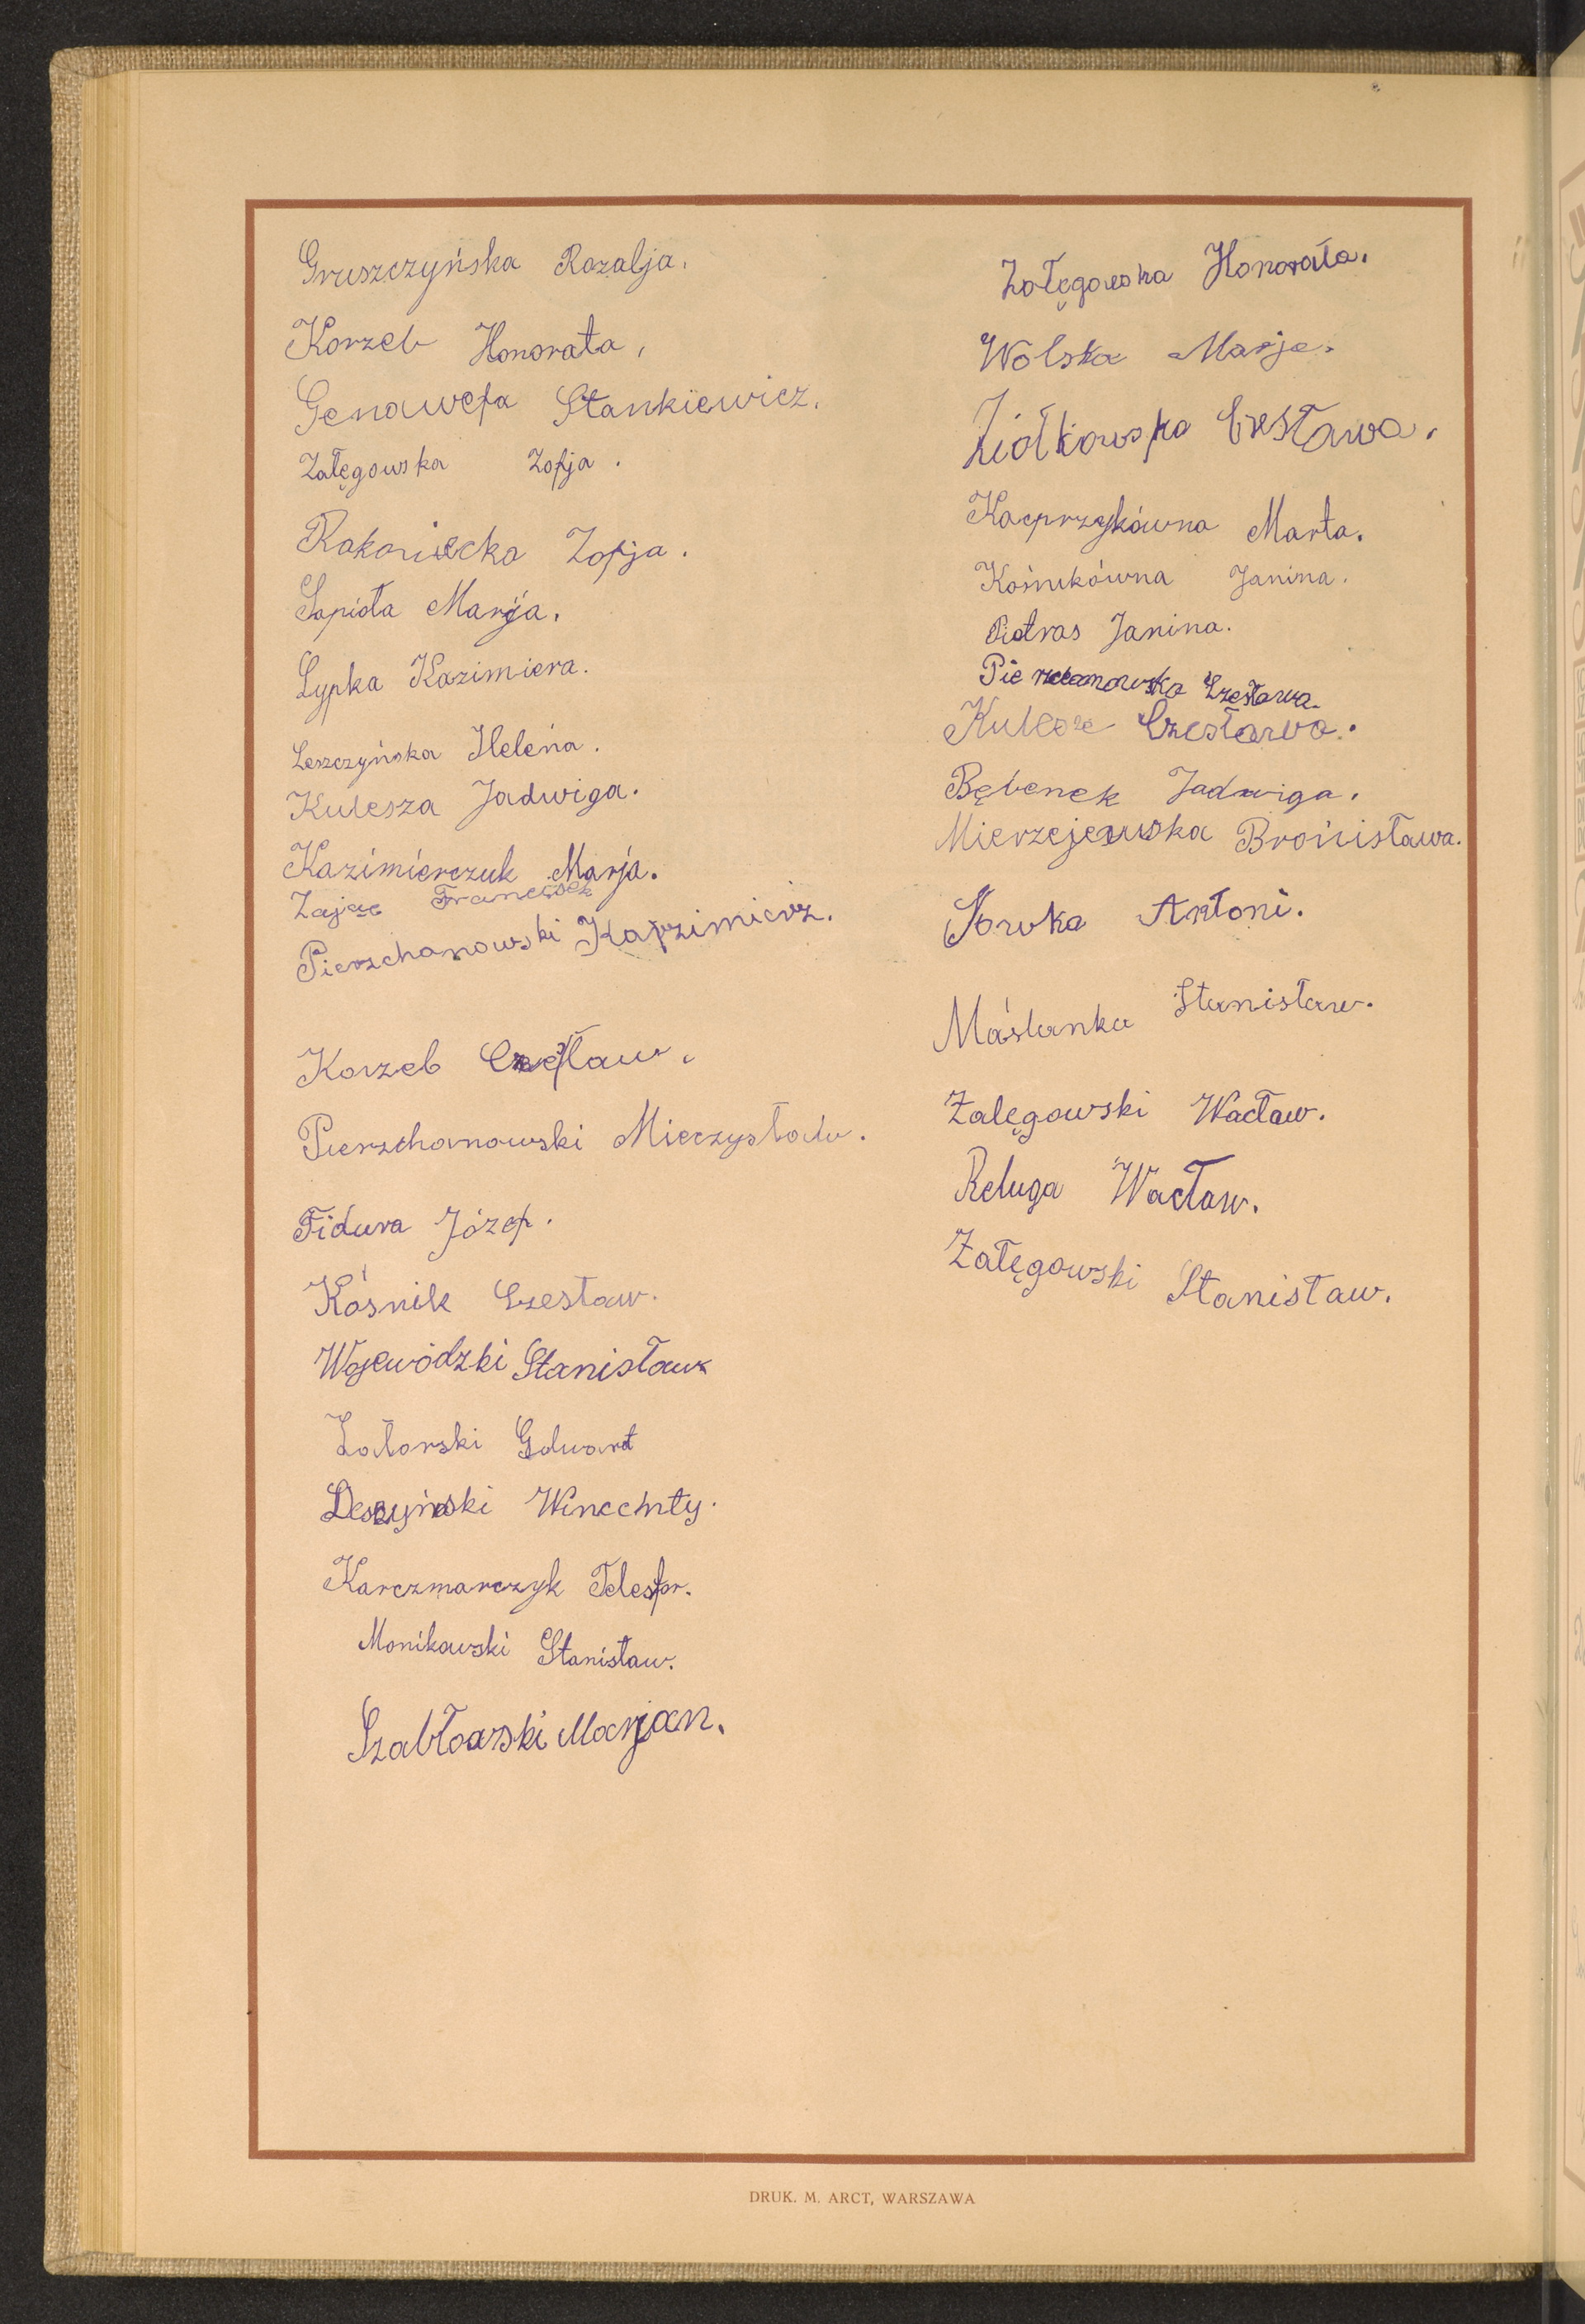 Gruszczyńska Rozalja.
Korzeb Honorata,
Genowefa Stankiewicz.
Załęgowska Zofja.
Rokoniecka Zofja.
Sapiota Marja.
Lypka Kazimiera.
Leszczyńska Helena.
Kulesza Jadwiga.
Kazimierczuk Marja.
Zając Franciszek
Pierzchanowski Kazimierz.
Korzeb Czesław.
Pierzchanowski Mieczysław.
Fidura Józef.
Kośnik Czesław.
Wojewódzki Stanisław
Zatorski Edward
Winecnty.
Karczmarczyk Telesfor.
Monikowski Stanisław.
Szabłowski Marjan.
Załęgowska Honorata.
Wolska Marja.
Ziółkowska Czesława.
Kacprzykówna Marta.
Kośnikówna Janina.
Piotras Janina.
Czesława.
Kulesze Czesława.
Bębenek Jadwiga.
Mierzejewska Bronisława.
Antoni.
Maślanka Stanisław.
Zalęgowski Wacław.
Reluga Wacław.
Załęgowski Stanisław.
DRUK. M. ARCT, WARSZAWA